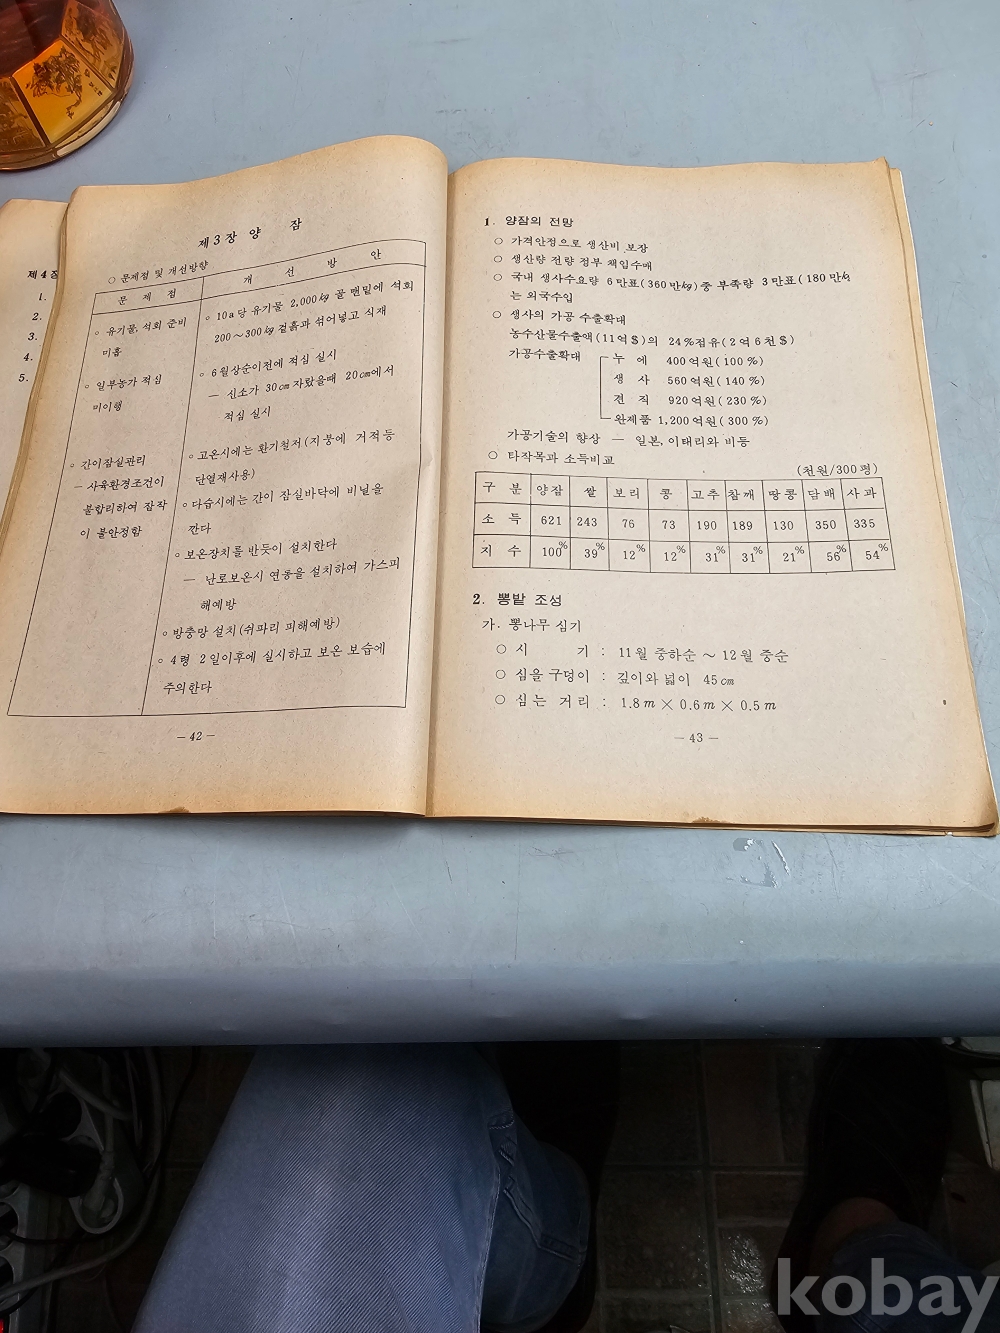 제4장
1.
2.
3.
4.
5.
제3장 양 잠
○ 문제점 및 개선방향
문 제 점
개 선 방 안
○ 유기물, 석회 준비
미흡
○ 10a당 유기물 2,000㎏ 골 맨밑에 석회
200～300㎏ 겉흙과 섞어넣고 식재
○ 일부농가 적심
미이행
○ 6월상순이전에 적심 실시
― 신소가 30㎝ 자랐을때 20㎝에서
적심 실시
○ 간이잠실관리
― 사육환경조건이
불합리하여 잠작
이 불안정함
○ 고온시에는 환기철저(지붕에 거적등
단열재사용)
○ 다습시에는 간이 잠실바닥에 비닐을
깐다
○ 보온장치를 반듯이 설치한다
― 난로보온시 연통을 설치하여 가스피
해예방
○ 방충망 설치(쉬파리 피해예방)
○ 4령 2일이후에 실시하고 보온 보습에
주의한다
― 42 ―
1. 양잠의 전망
○ 가격안정으로 생산비 보장
○ 생산량 전량 정부 책임수매
○ 국내 생사수요량 6만표(360만㎏)중 부족량 3만표(180만㎏
는 외국수입
○ 생사의 가공 수출확대
농수산물수출액(11억$)의 24%점유(2억6천$)
가공수출확대 누 에 400억원(100%)
생 사 560억원(140%)
견 직 920억원(230%)
완제품 1,200억원(300%)
가공기술의 향상 ― 일본, 이태리와 비등
○ 타작목과 소득비교
(천원/300평)
구 분 양잠 쌀 보리 콩 고추 참깨 땅콩 담배 사과
소 득 621 243 76 73 190 189 130 350 335
지 수 100% 39% 12% 12% 31% 31% 21% 56% 54%
2. 뽕밭 조성
가. 뽕나무 심기
○ 시 기 : 11월 중하순 ～ 12월 중순
○ 심을 구덩이 : 깊이와 넓이 45㎝
○ 심는 거리 : 1.8m × 0.6m × 0.5m
― 43 ―
kobay